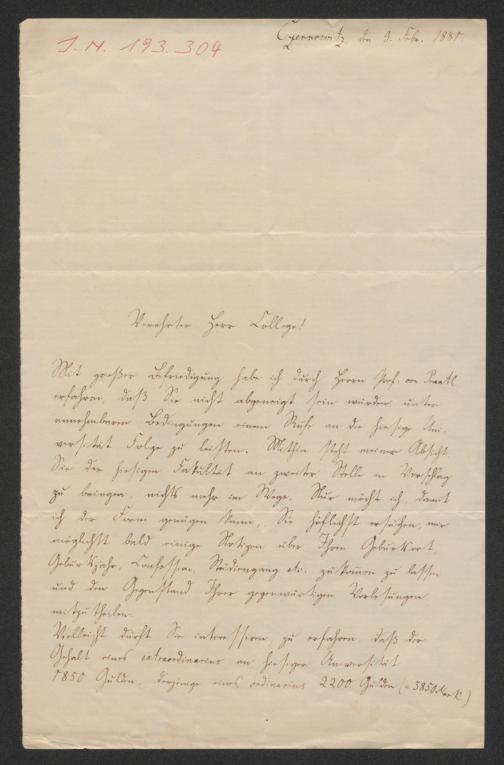 J. N. 193.304
Czernowitz den 9. Febr. 1881
Verehrter Herr College!
Mit großer Befriedigung habe ich durch Herrn Prof. von
erfahren, daß Sie nicht abgeneigt sein würden unter
annehmbaren Bedingungen einem Rufe an die hiesige Uni-
versität Folge zu leisten. Mithin steht meiner Absicht
Sie der hiesigen Fakultät an zweiter Stelle in Vorschlag
zu bringen, nichts mehr im Wege. Nur möcht ich, damit
ich der Form genügen kann, Sie höflichst ersuchen, mir
möglichst bald einige Notizen über Ihren Geburtsort,
Geburtsjahr, Confession, Studiengang etc. zukommen zu lassen
und den Gegenstand Ihrer gegenwärtigen Vorlesungen
mitzutheilen.
Vielleicht dürft Sie interessiren, zu erfahren, daß der
Gehalt eines extraordinarius an hiesiger Universität
1850 Gulden, derjenige eines ordinarius 2200 Gulden (= 3850 Mark)